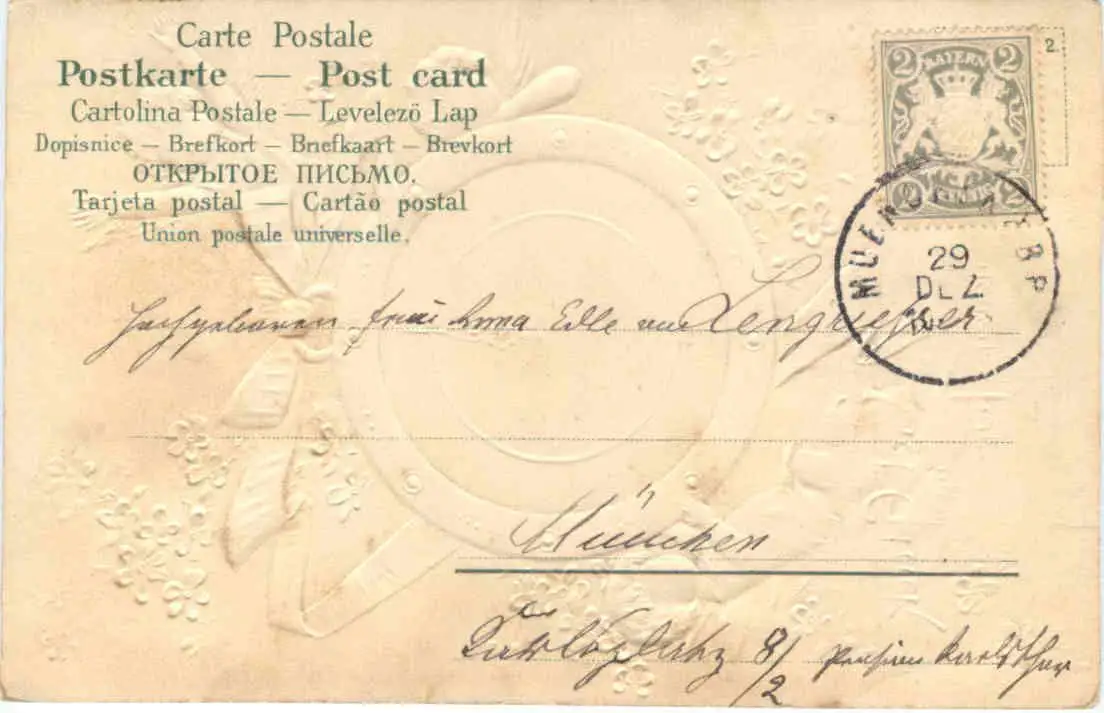 Carte Postale
Postkarte — Post card
Cartolina Postale — Levelező Lap
Dopisnice — Brefkort — Briefkaart — Brevkort
ОТКРЫТОЕ ПИСЬМО.
Tarjeta postal — Cartão postal
Union postale universelle.
2 BAYERN 2
2.
2 2
29
DEZ
Hochgeboren Frau Anna Edle von
München
Karlsplatz 8/2 Pension Karlsthor